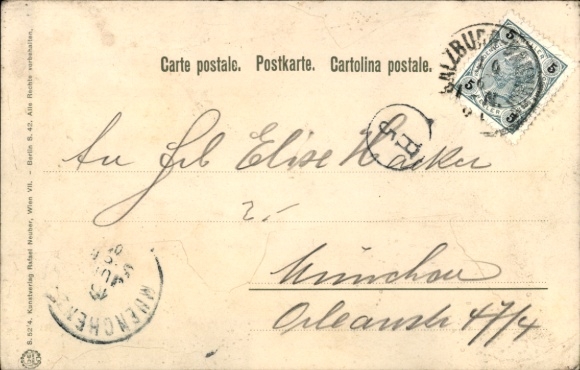 Carte postale. Postkarte. Cartolina postale.
SALZBURG
5 5
5 5
An Frl Elise Hacker
München
Orleanstr 47/4
MUENCHEN
B. 52'4. Kunstverlag Rafael Neuber, Wien VII. – Berlin S. 42. Alle Rechte vorbehalten.